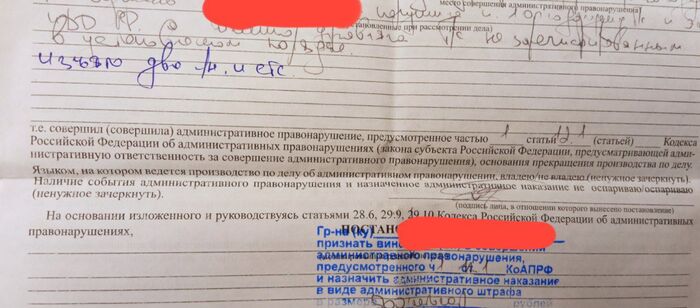 место совершения административного правонарушения)
УДО РФ.
установленные при рассмотрении дела)
в установленном порядке
изъято два
т.е. совершил (совершила) административное правонарушение, предусмотренное частью 1 статьи 12.1 (статьей) Кодекса
Российской Федерации об административных правонарушениях (закона субъекта Российской Федерации, предусматривающей адми-
нистративную ответственность за совершение административного правонарушения), основания прекращения производства по делу.
Языком, на котором ведется производство по делу об административном правонарушении, владею/не владею (ненужное зачеркнуть).
Наличие события административного правонарушения и назначенное административное наказание не оспариваю/оспариваю
(ненужное зачеркнуть).
(подпись лица, в отношении которого вынесено постановление)
На основании изложенного и руководствуясь статьями 28.6, 29.9, 29.10 Кодекса Российской Федерации об административных
правонарушениях,
Гр-на (ку)
признать вино
административного правонарушения,
предусмотренного ч 1 12.1 КоАПРФ
и назначить административное наказание
в виде административного штрафа
в размере рублей